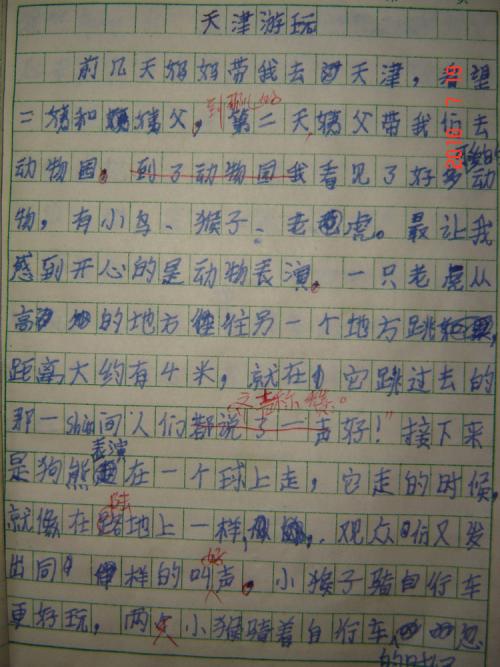 天津游玩
前几天妈妈带我去天津，看望
二姨和姨父，第二天，姨父带我们去
动物园。到了动物园我看见了好多的动
物，有小鸟、猴子、老虎。最让我
感到开心的是动物表演。一只老虎从
高的地方往另一个地方跳，
距离大约有4米，就在它跳过去的
齐声称赞。
那一shùn间人们都说了一声好！"接下来
是狗熊表演在一个球上走，它走的时候，
就像在陆地上一样，观众们又发
出同样的叫好声。小猴子骑自行车
更好玩，两只小猴骑着自行车，忽
2010 7 19